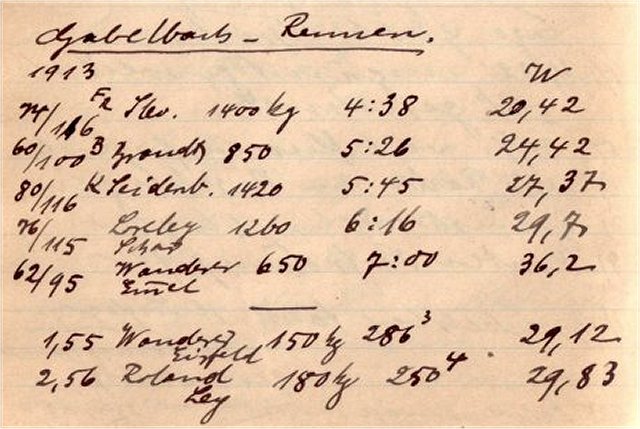 Gabelbach - Rennen.
1913 W
74/116 Fr. Stev. 1400 kg 4:38 20,42
60/100 B Grandtz 850 5:26 24,42
80/116 K Seidenb. 1420 5:45 27,37
76/115 Loreley 1260 6:16 29,7
62/95 Wanderer 650 7:00 36,2
1,55 Wanderer 150 kg 286³ 29,12
Eisfeld
2,56 Roland 180 kg 250⁴ 29,83
Ley